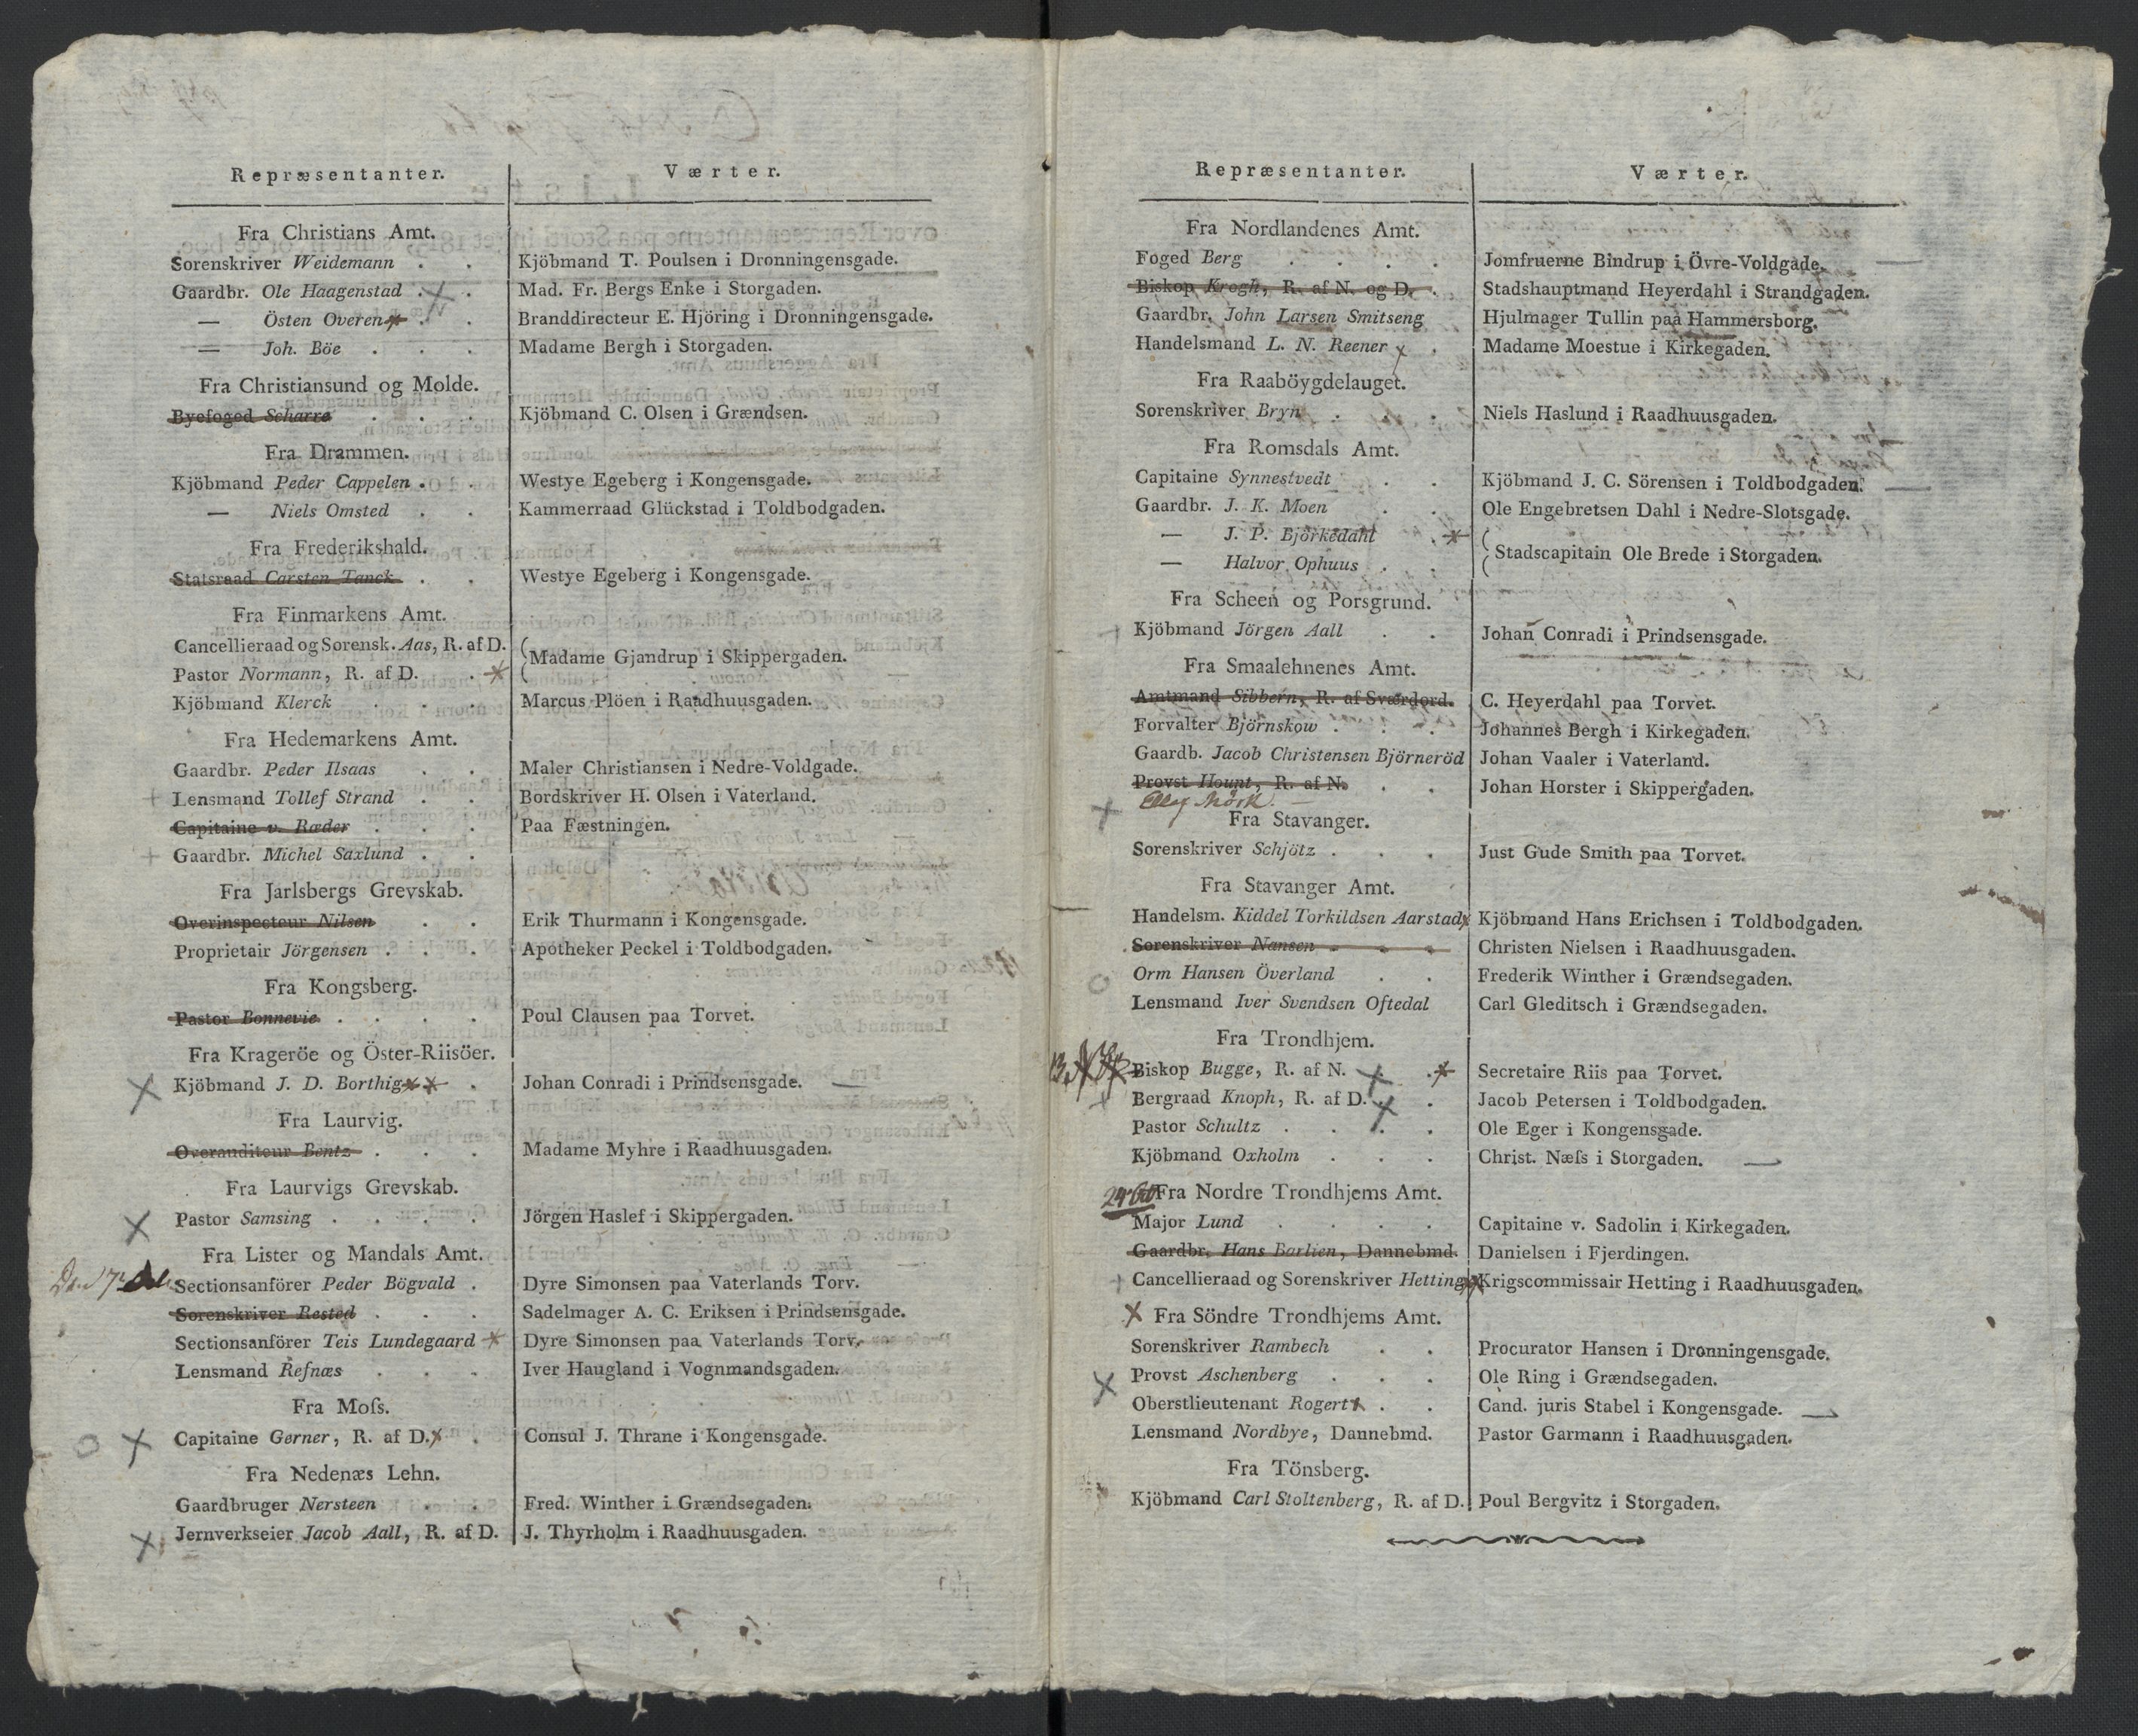 Repræsentanter. Værter.
Fra Christians Amt.
Sorenskriver Weidemann . . Kjöbmand T. Poulsen i Dronningensgade.
Gaardbr. Ole Haagenstad . . Mad. Fr. Bergs Enke i Storgaden.
— Östen Overen . . Branddirecteur E. Hjöring i Dronningensgade.
— Joh. Böe . . . Madame Bergh i Storgaden.
Fra Christiansund og Molde.
Byefoged Scharre . . . Kjöbmand C. Olsen i Grændsen.
Fra Drammen.
Kjöbmand Peder Cappelen . . Westye Egeberg i Kongensgade.
— Niels Omsted . . Kammerraad Glückstad i Toldbodgaden.
Fra Frederikshald.
Statsraad Carsten Tanck . . Westye Egeberg i Kongensgade.
Fra Finmarkens Amt.
Cancellieraad og Sorensk. Aas, R. af D.
Madame Gjandrup i Skippergaden.
Pastor Normann, R. af D. .
Kjöbmand Klerck . . . Marcus Plöen i Raadhuusgaden.
Fra Hedemarkens Amt.
Gaardbr. Peder Ilsaas . . Maler Christiansen i Nedre-Voldgade.
Lensmand Tollef Strand . . Bordskriver H. Olsen i Vaterland.
Capitaine v. Ræder . . . Paa Fæstningen.
Gaardbr. Michel Saxlund . .
Fra Jarlsbergs Grevskab.
Overinspecteur Nilsen . . Erik Thurmann i Kongensgade.
Proprietair Jörgensen . . . Apotheker Peckel i Toldbodgaden.
Fra Kongsberg.
Pastor Bonnevie . . . . Poul Clausen paa Torvet.
Fra Krageröe og Öster-Riisöer.
X Kjöbmand J. D. Borthig . Johan Conradi i Prindsensgade. —
Fra Laurvig.
Overauditeur Bentz . . . Madame Myhre i Raadhuusgaden.
Fra Laurvigs Grevskab.
X Pastor Samsing . . . . Jörgen Haslef i Skippergaden.
Fra Lister og Mandals Amt.
Sectionsanförer Peder Bögvald . Dyre Simonsen paa Vaterlands Torv.
Sorenskriver Rested . . . Sadelmager A. C. Eriksen i Prindsensgade.
Sectionsanförer Teis Lundegaard Dyre Simonsen paa Vaterlands Torv.
Lensmand Refnæs . . . Iver Haugland i Vognmandsgaden.
Fra Moſs.
O X Capitaine Gerner, R. af D. . Consul J. Thrane i Kongensgade.
Fra Nedenæs Lehn.
Gaardbruger Nersteen . . Fred. Winther i Grændsegaden.
X Jernverkseier Jacob Aall, R. af D. J. Thyrholm i Raadhuusgaden.
Repræsentanter. Værter.
Fra Nordlandenes Amt.
Foged Berg . . . . Jomfruerne Bindrup i Övre-Voldgade.
Biskop Krogh, R. af N. og D. . Stadshauptmand Heyerdahl i Strandgaden.
Gaardbr. John Larsen Smitseng Hjulmager Tullin paa Hammersborg.
Handelsmand L. N. Reener . Madame Moestue i Kirkegaden.
Fra Raaböygdelauget.
Sorenskriver Bryn . . . Niels Haslund i Raadhuusgaden.
Fra Romsdals Amt.
Capitaine Synnestvedt . . Kjöbmand J. C. Sörensen i Toldbodgaden. —
Gaardbr. J. K. Moen . . Ole Engebretsen Dahl i Nedre-Slotsgade.
— J. P. Björkedahl .
Stadscapitain Ole Brede i Storgaden.
— Halvor Ophuus . .
Fra Scheen og Porsgrund.
Kjöbmand Jörgen Aall . . Johan Conradi i Prindsensgade.
Fra Smaalehnenes Amt.
Amtmand Sibbern, R. af Sværdord. C. Heyerdahl paa Torvet.
Forvalter Björnskow . . . Johannes Bergh i Kirkegaden.
Gaardb. Jacob Christensen Björneröd Johan Vaaler i Vaterland.
Provst Hount, R. af N. . . Johan Horster i Skippergaden.
Mörk.
Fra Stavanger.
Sorenskriver Schjötz . . . Just Gude Smith paa Torvet.
Fra Stavanger Amt.
Handelsm. Kiddel Torkildsen Aarstad Kjöbmand Hans Erichsen i Toldbodgaden.
Sorenskriver Nansen . . . Christen Nielsen i Raadhuusgaden.
O Orm Hansen Överland . . Frederik Winther i Grændsegaden.
Lensmand Iver Svendsen Oftedal Carl Gleditsch i Grændsegaden.
Fra Trondhjem.
Biskop Bugge, R. af N. . Secretaire Riis paa Torvet.
Bergraad Knoph, R. af D. . . Jacob Petersen i Toldbodgaden.
Pastor Schultz . . . . Ole Eger i Kongensgade.
Kjöbmand Oxholm . . . Christ. Næſs i Storgaden. —
Fra Nordre Trondhjems Amt.
Major Lund . . . . Capitaine v. Sadolin i Kirkegaden.
Gaardbr. Hans Barlien, Dannebmd. Danielsen i Fjerdingen.
Cancellieraad og Sorenskriver Hetting Krigscommissair Hetting i Raadhuusgaden.
X Fra Söndre Trondhjems Amt.
Sorenskriver Rambech . . Procurator Hansen i Dronningensgade.
X Provst Aschenberg . . . Ole Ring i Grændsegaden.
Oberstlieutenant Rogert . . Cand. juris Stabel i Kongensgade. —
Lensmand Nordbye, Dannebmd. Pastor Garmann i Raadhuusgaden.
Fra Tönsberg.
Kjöbmand Carl Stoltenberg, R. af D. Poul Bergvitz i Storgaden.